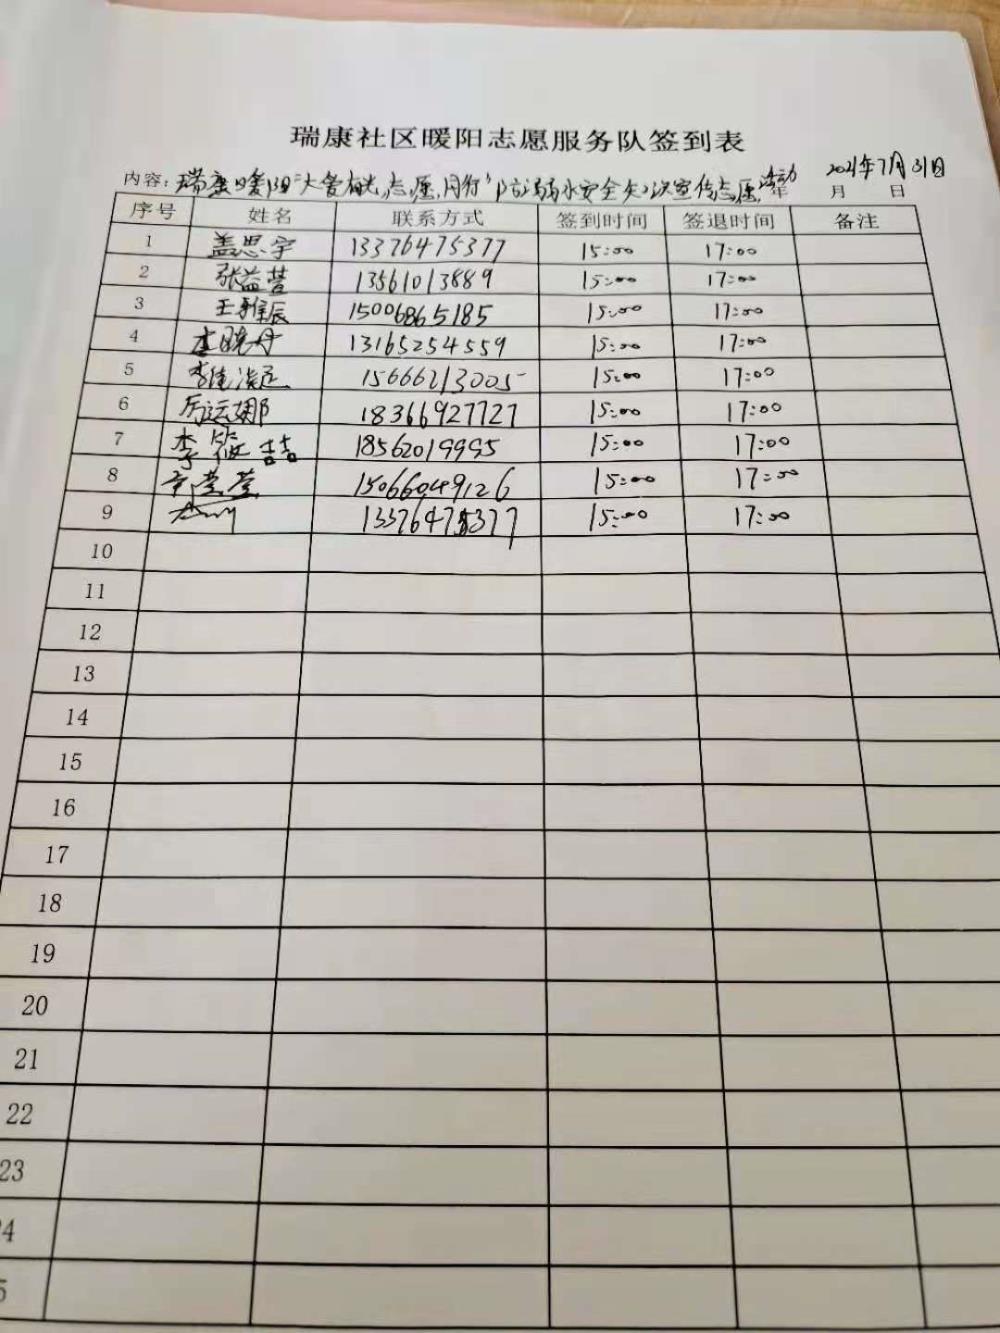 瑞康社区暖阳志愿服务队签到表
内容: 瑞康暖阳"大鲁有光,志愿同行"防溺水安全知识宣传志愿活动 2021年7月31日 年 月 日
序号 姓名 联系方式 签到时间 签退时间 备注
1 盖思宇 13376475377 15:00 17:00
2 张益萱 13561013889 15:00 17:00
3 王雅辰 15006865185 15:00 17:00
4 李晓丹 13165254559 15:00 17:00
5 15666213005 15:00 17:00
6 18366927727 15:00 17:00
7 李筱喆 18562019995 15:00 17:00
8 15066049126 15:00 17:00
9 13376475377 15:00 17:00
10
11
12
13
14
15
16
17
18
19
20
21
22
23
4
5